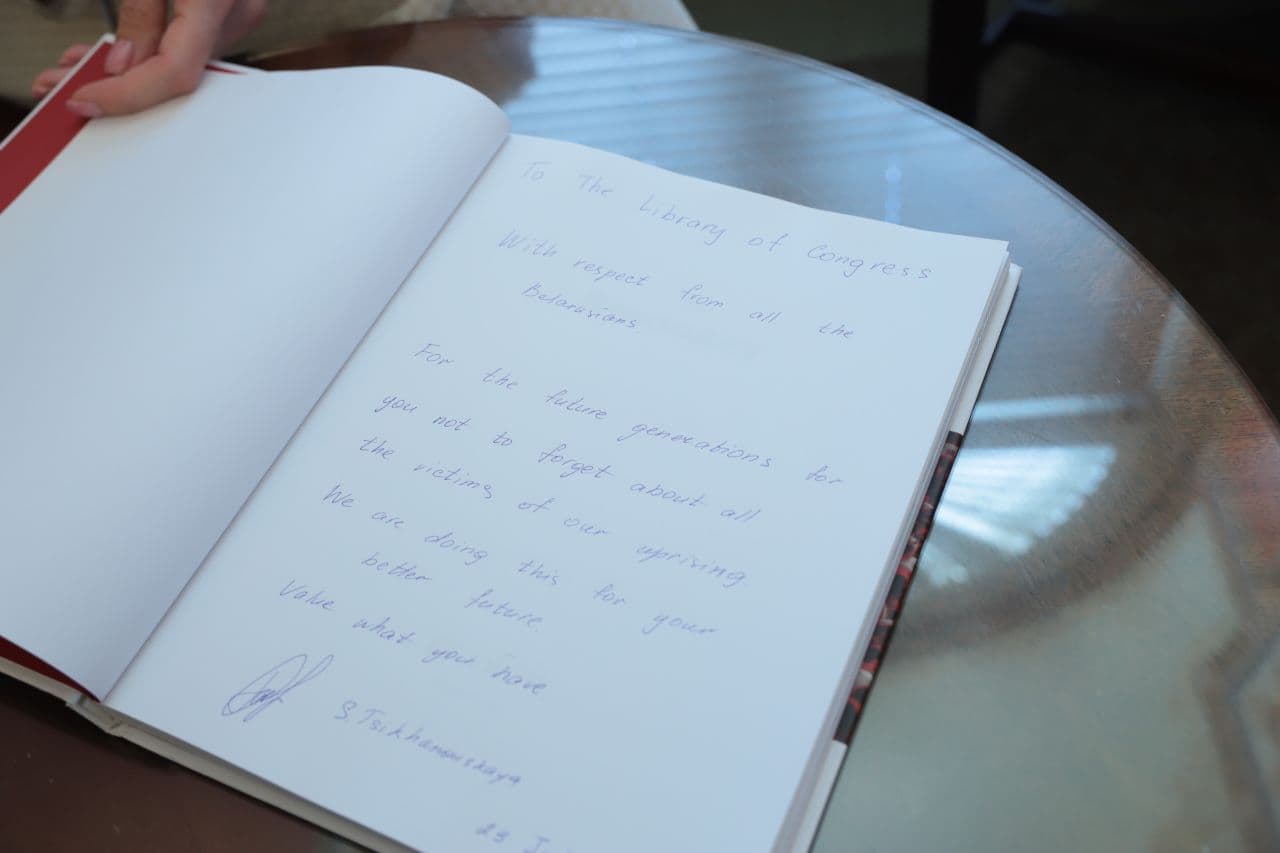 To The Library of Congress
With respect from all the
Belarusians
For the future generations for
you not to forget about all
the victims of our uprising
We are doing this for your
better future.
Value what you have
S. Tsikhanouskaya